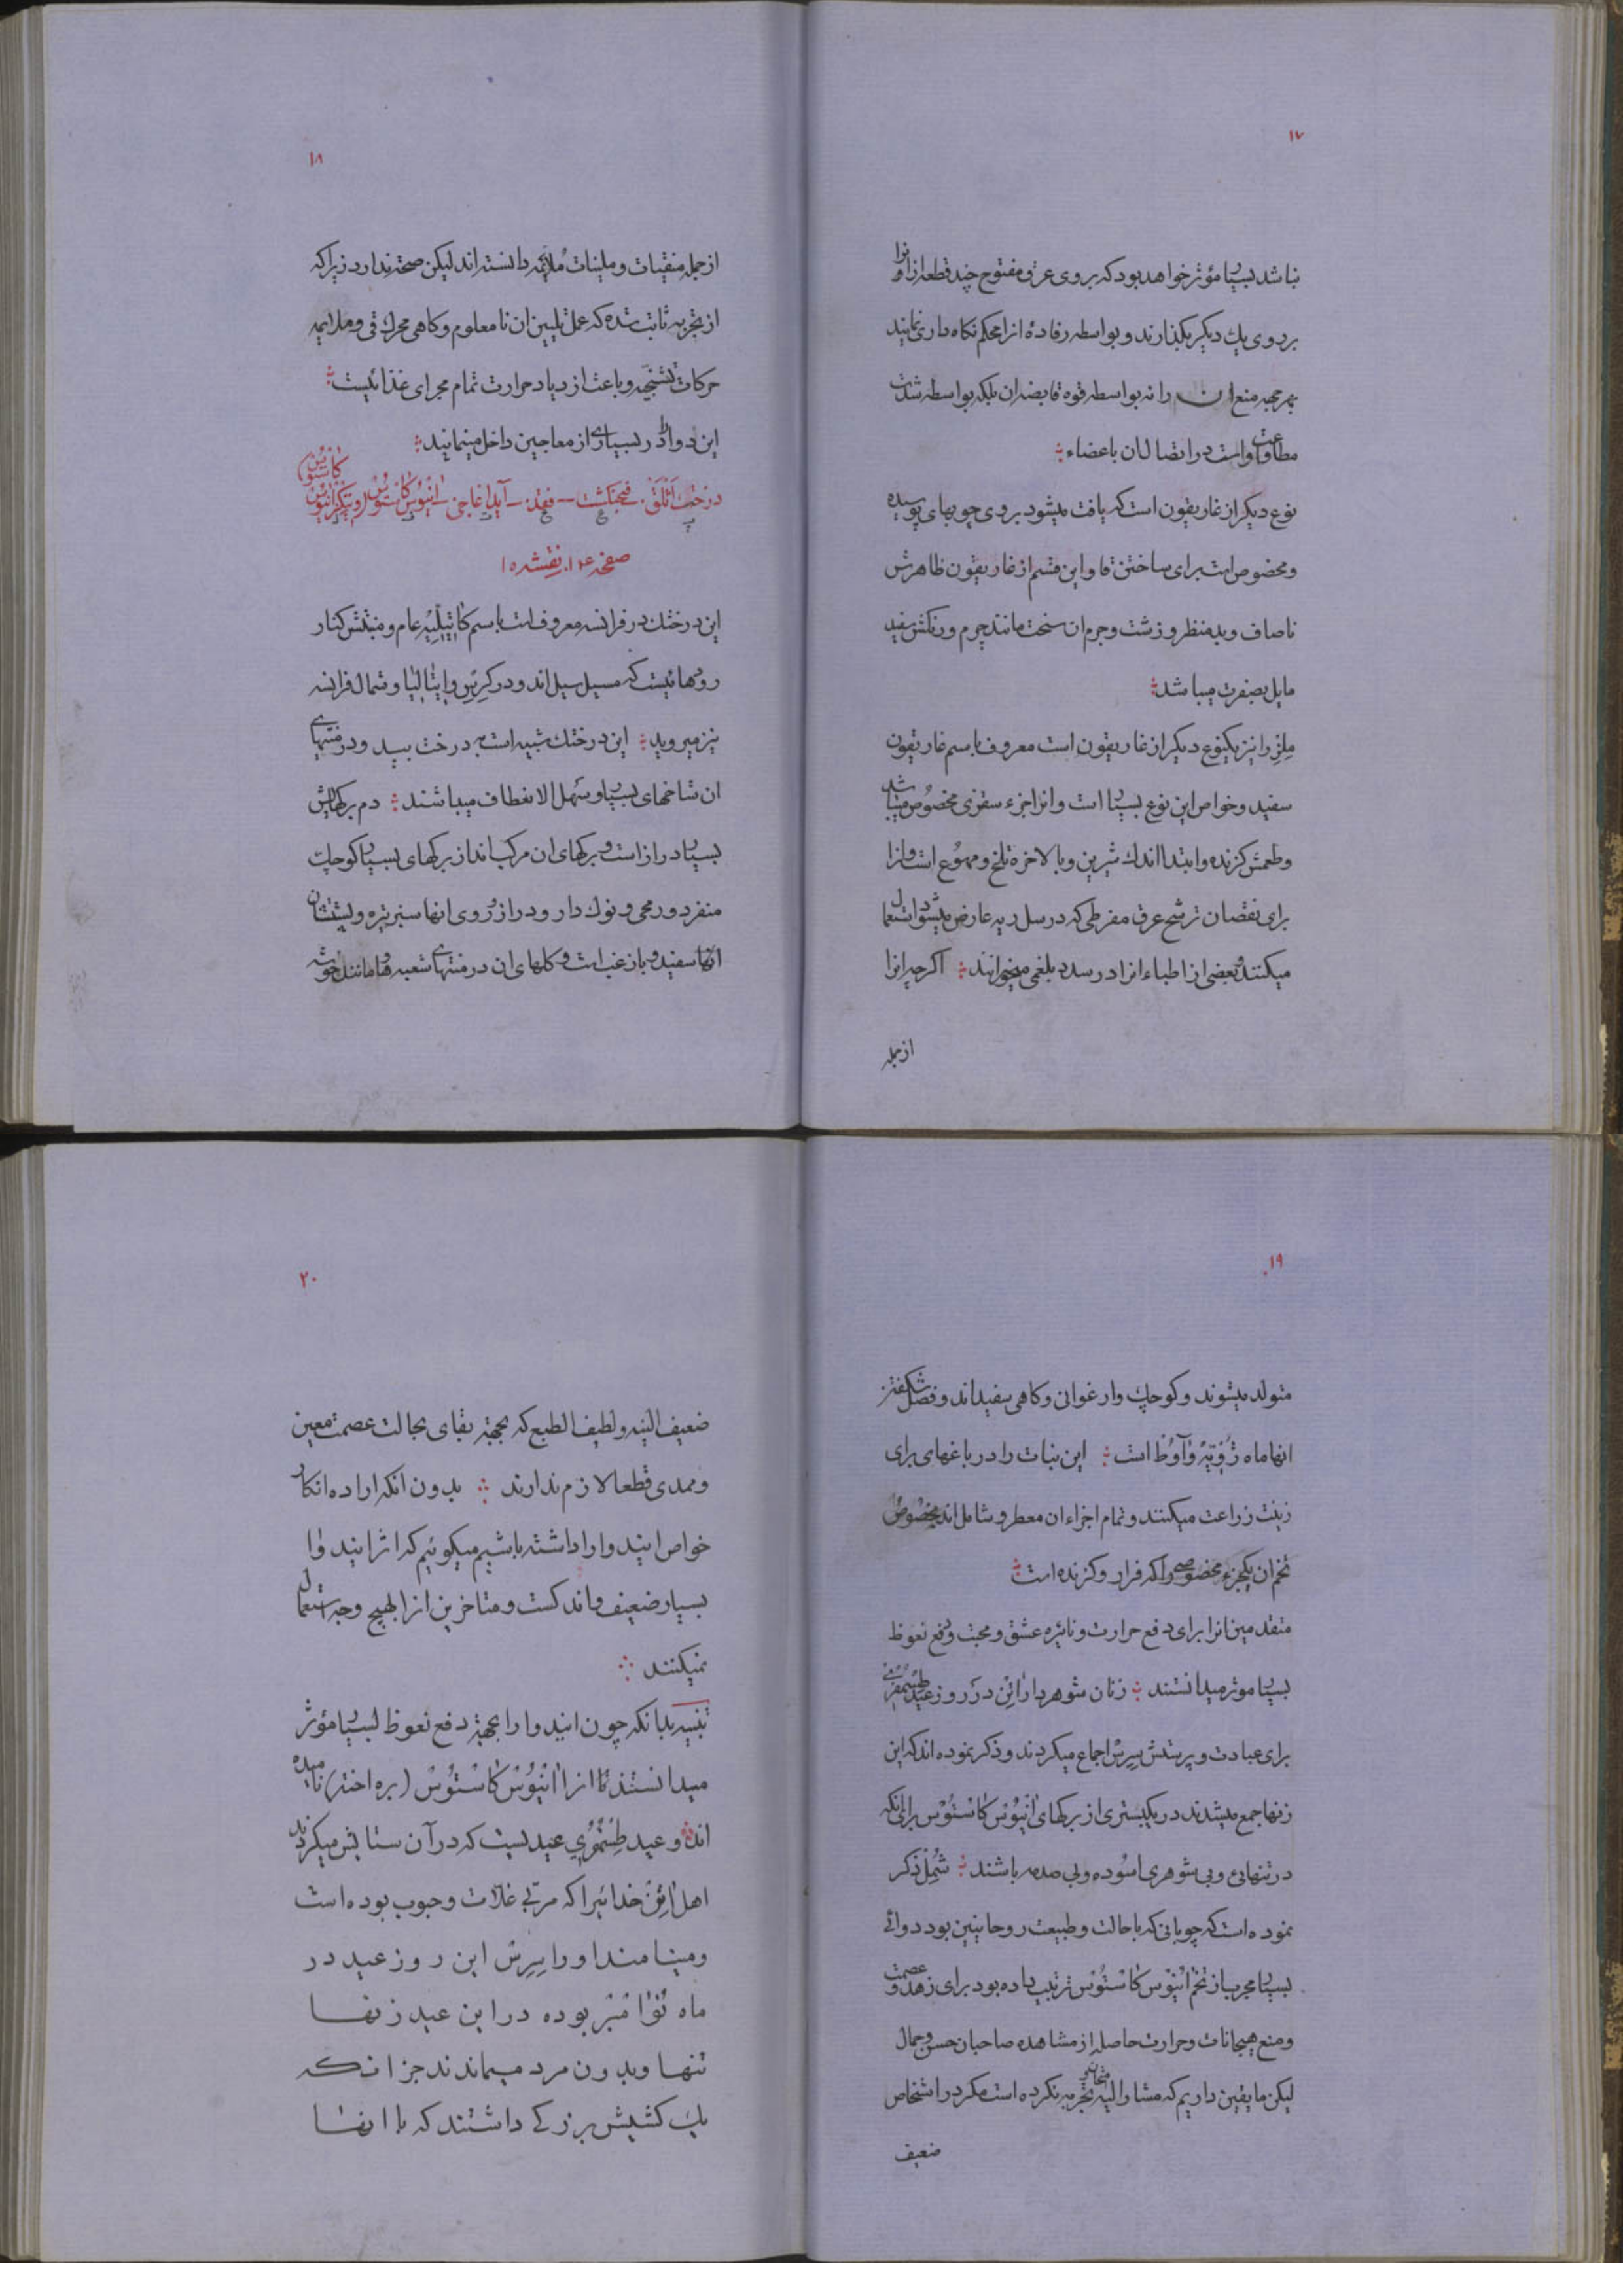 ۱۷
نباشد بسیار مؤثر خواهد بود که بروی عرق مفتوح چند قطعه از او را
بر دوی یك دیگر بگذارند و بواسطه رفادۀ انرا محکم نگاه داری نمایند
بهر جهة منع ان را نه بواسطه قوه قابضه ان بلکه بواسطه شدت
مطاوعت او است در اتصال ان باعضاء
نوع دیگر از غاریقون است که یافت میشود بروی چوبهای پوسیده
و مخصوص است برای ساختن قاو این قسم از غاریقون ظاهرش
ناصاف و بد منظر و زشت و جرم ان سخت مانند چرم و رنگش سفید
مایل بصفرت میباشد
ملز را نیز یکنوع دیگر از غاریقون است معروف باسم غاریقون
سفید و خواص این نوع بسیار است و انرا جزء سقزی مخصوص میباشد
و طعمش گزنده و ابتدا اندك شیرین و بالاخره تلخ و مهوع است و انرا
برای نقصان ترشح عرق مفرطی که در سل ریه عارض میشود استعمال
میکنند و بعضی از اطباء انرا در سدد بلغمی میخورانند اگرچه انرا
از جمله
۱۸
از جمله منقیات و ملینات ملایمه دانسته اند لیکن صحة ندارد زیرا که
از تجربه ثابت شده که عمل تلیین ان نامعلوم و کاهی محرك قی و ملایمه
حرکات تشنجیه و باعث ازدیاد حرارت تمام مجرای غذائیست
این دوا در بسیاری از معاجین داخل مینمایند
درخت اثلق. فنجنکشت – فقد – آیداغاجی – انیوس کاستوس (ویتکز انیوس کاستوس)
صفحه ۱۰۴ نقشه ۱
این درختك در فرانسه معروف است باسم کاتیلیه عام و منبتش کنار
رودهائیست که مسیل سیل اند و در کرس و ایتالیا و شمال فرانسه
نیز میروید این درختك شبیه است به درخت بید و در منتهای
ان شاخهای بسیار و سهل الانعطاف میباشند دم برگهایش
بسیار دراز است و برگهای ان مرکب اند از برگهای بسیار کوچك
منفرد و رمحی و نوك دار و دراز روی انها سبز تیره و پشتشان
انها سفید و با زغب است و گلهای ان در منتهای شعبه ها مانند خوشه
۱۹
متولد میشوند و کوچك و ارغوانی و کاهی سفید اند و فصل شکفتن
انها ماه ژویّه و آوظ است این نبات را در باغهای برای
زینت زراعت میکنند و تمام اجزاء ان معطر و شامل اند بخصوص
تخم ان یکجزء مخصوصی را که فرار و گزنده است
متقدمین انرا برای دفع حرارت و نائره عشق و محبت و رفع نعوظ
بسیار موثر میدانستند زنان شوهردار اتن در روز عید طسمفری
برای عبادت و پرستش سرس اجماع میکردند و ذکر نموده اند که این
زنها جمع میشدند در یکبستری از برگهای انیوس کاستوس برای انکه
در تنهائی و بی شوهری اسوده و بی صدمه باشند شمل ذکر
نموده است که چوبانی که با حالت و طبیعت روحانیین بود دوائی
بسیار مجرب از تخم انیوس کاستوس ترتیب داده بود برای زهد و عصمت
و منع هیجانات و حرارت حاصله از مشاهده صاحبان حسن و جمال
لیکن ما یقین داریم که مشارالیه تجربه نکرده است مگر در اشخاص
ضعیف
۲۰
ضعیف البنیه و لطیف الطبع که بجهة بقای بحالت عصمت معین
و ممدی قطعا لازم ندارند بدون انکه اراده انکار
خواص ایندوا را داشته باشیم میگوئیم که اثر ایندوا
بسیار ضعیف و اندکست و متاخرین انرا بهیچ وجه استعمال
نمیکنند
تنبیه بدانکه چون ایندوا را بجهة دفع نعوظ بسیار مؤثر
میدانستند لذا انرا انیوس کاستوس (بره اخته) نامیده
اند و عید طسمفری عیدیست که در آن ستایش میکردند
اهل اتن خدائیرا که مربی غلات و حبوب بوده است
و مینامند او را سرس این روز عید در
ماه نوامبر بوده در این عید زنها
تنها و بدون مرد میماندند جز انکه
یك کشیش بزرگی داشتند که با انها